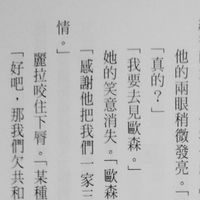 他的兩眼稍微發亮。「
「真的？」
「我要去見歐森。」
她的笑意消失。「歐森
「感謝他把我們一家三
情。」
麗拉咬住下脣。「某種
「好吧，那我們欠共和